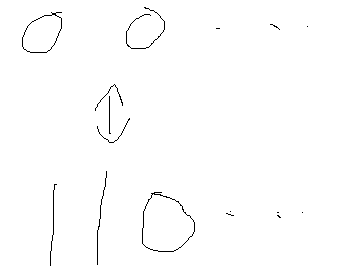 0 0 . . .
↕
1 1 0 . . .